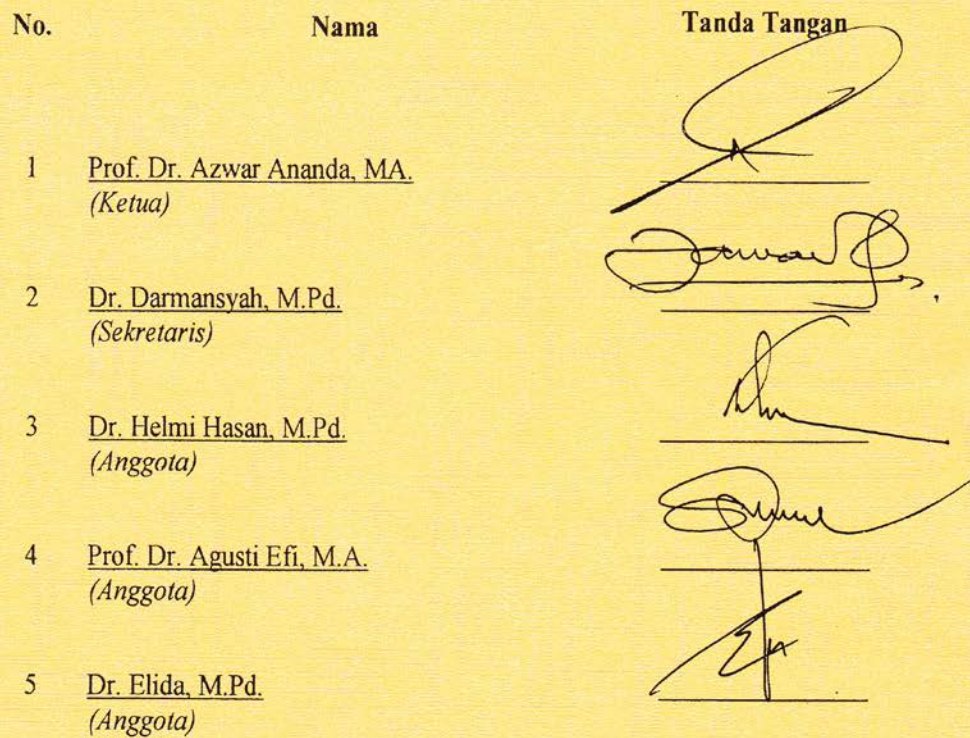 No. Nama Tanda Tangan
1 Prof. Dr. Azwar Ananda, MA.
(Ketua)
2 Dr. Darmansyah, M.Pd.
(Sekretaris)
3 Dr. Helmi Hasan, M.Pd.
(Anggota)
4 Prof. Dr. Agusti Efi, M.A.
(Anggota)
5 Dr. Elida, M.Pd.
(Anggota)